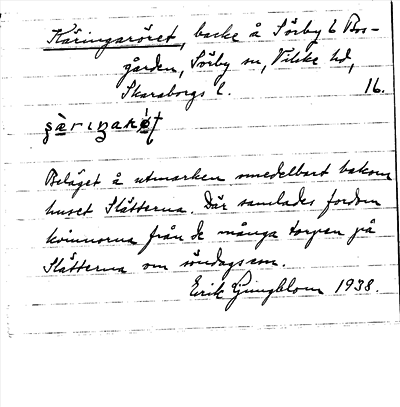 Käringaröret, backe å Sörby 6 Bos-
gården, Sörby sn, Vilske hd,
Skaraborgs l. 16.
Beläget å utmarken omedelbart bakom
huset Slätterna. Där samlades fordom
kvinnorna från de många torpen på
Slätterna om söndagarna.
Erik Ljungblom 1938.